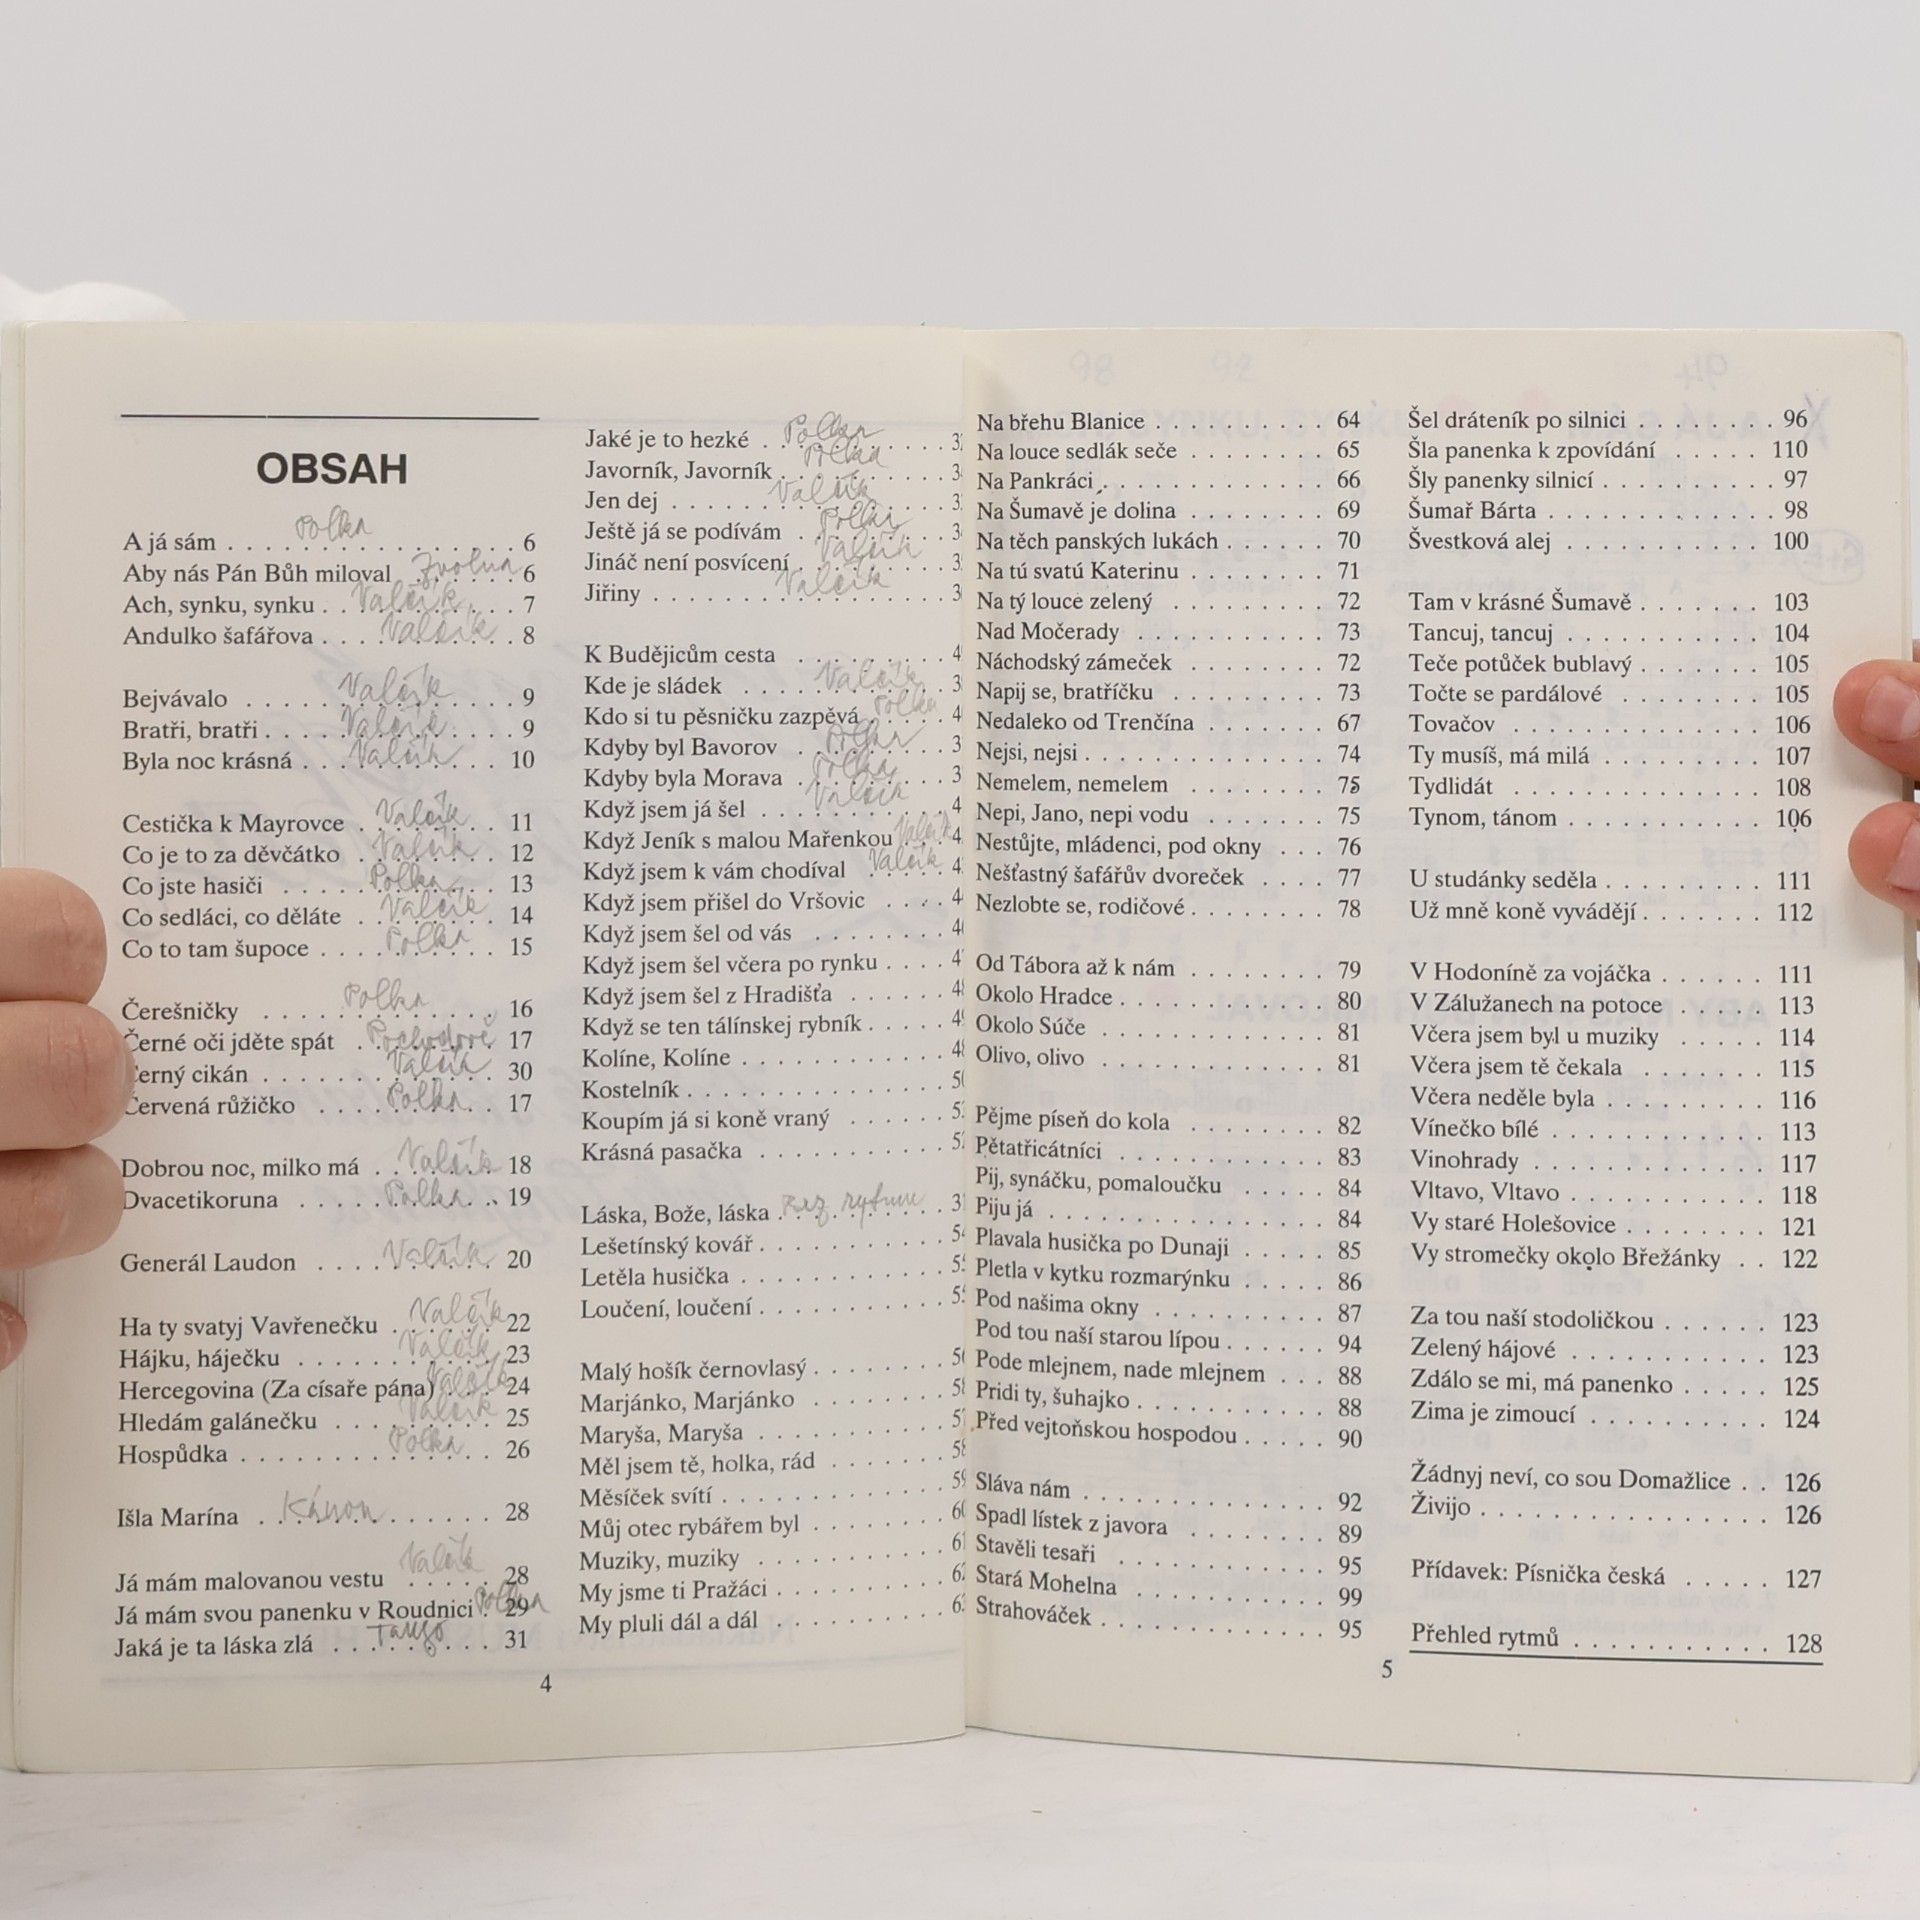 OBSAH
A já sám Polka 6
Aby nás Pán Bůh miloval Zvolna 6
Ach, synku, synku Valčík 7
Andulko šafářova Valčík 8
Bejvávalo Valčík 9
Bratři, bratři Valčík 9
Byla noc krásná Valčík 10
Cestička k Mayrovce Valčík 11
Co je to za děvčátko Valčík 12
Co jste hasiči Polka 13
Co sedláci, co děláte Valčík 14
Co to tam šupoce Polka 15
Čerešničky Polka 16
Černé oči jděte spát Pochodově 17
Černý cikán Valčík 30
Červená růžičko Polka 17
Dobrou noc, milko má Valčík 18
Dvacetikoruna Polka 19
Generál Laudon Valčík 20
Ha ty svatyj Vavřenečku Valčík 22
Hájku, háječku Valčík 23
Hercegovina (Za císaře pána) Valčík 24
Hledám galánečku Valčík 25
Hospůdka Polka 26
Išla Marína Kánon 28
Já mám malovanou vestu Valčík 28
Já mám svou panenku v Roudnici Polka 29
Jaká je ta láska zlá Tango 31
4
Jaké je to hezké Polka
Javorník, Javorník Polka
Jen dej Valčík
Ještě já se podívám Polka
Jináč není posvícení Valčík
Jiřiny Valčík
K Budějicům cesta
Kde je sládek Valčík
Kdo si tu pěsničku zazpěvá Polka
Kdyby byl Bavorov Polka
Kdyby byla Morava Polka
Když jsem já šel Valčík
Když Jeník s malou Mařenkou Valčík
Když jsem k vám chodíval Valčík
Když jsem přišel do Vršovic
Když jsem šel od vás
Když jsem šel včera po rynku
Když jsem šel z Hradišťa
Když se ten tálínskej rybník
Kolíne, Kolíne
Kostelník
Koupím já si koně vraný
Krásná pasačka
Láska, Bože, láska Bez rytmu
Lešetínský kovář
Letěla husička
Loučení, loučení
Malý hošík černovlasý
Marjánko, Marjánko
Maryša, Maryša
Měl jsem tě, holka, rád
Měsíček svítí
Můj otec rybářem byl
Muziky, muziky
My jsme ti Pražáci
My pluli dál a dál
Na břehu Blanice 64
Na louce sedlák seče 65
Na Pankráci 66
Na Šumavě je dolina 69
Na těch panských lukách 70
Na tú svatú Katerinu 71
Na tý louce zelený 72
Nad Močerady 73
Náchodský zámeček 72
Napij se, bratříčku 73
Nedaleko od Trenčína 67
Nejsi, nejsi 74
Nemelem, nemelem 75
Nepi, Jano, nepi vodu 75
Nestůjte, mládenci, pod okny 76
Nešťastný šafářův dvoreček 77
Nezlobte se, rodičové 78
Od Tábora až k nám 79
Okolo Hradce 80
Okolo Súče 81
Olivo, olivo 81
Pějme píseň do kola 82
Pětatřicátníci 83
Pij, synáčku, pomaloučku 84
Piju já 84
Plavala husička po Dunaji 85
Pletla v kytku rozmarýnku 86
Pod našima okny 87
Pod tou naší starou lípou 94
Pode mlejnem, nade mlejnem 88
Pridi ty, šuhajko 88
Před vejtoňskou hospodou 90
Sláva nám 92
Spadl lístek z javora 89
Stavěli tesaři 95
Stará Mohelna 99
Strahováček 95
5
Šel dráteník po silnici 96
Šla panenka k zpovídání 110
Šly panenky silnicí 97
Šumař Bárta 98
Švestková alej 100
Tam v krásné Šumavě 103
Tancuj, tancuj 104
Teče potůček bublavý 105
Točte se pardálové 105
Tovačov 106
Ty musíš, má milá 107
Tydlidát 108
Tynom, tánom 106
U studánky seděla 111
Už mně koně vyvádějí 112
V Hodoníně za vojáčka 111
V Zálužanech na potoce 113
Včera jsem byl u muziky 114
Včera jsem tě čekala 115
Včera neděle byla 116
Vínečko bílé 113
Vinohrady 117
Vltavo, Vltavo 118
Vy staré Holešovice 121
Vy stromečky okolo Břežánky 122
Za tou naší stodoličkou 123
Zelený hájové 123
Zdálo se mi, má panenko 125
Zima je zimoucí 124
Žádnyj neví, co sou Domažlice 126
Živijo 126
Přídavek: Písnička česká 127
Přehled rytmů 128